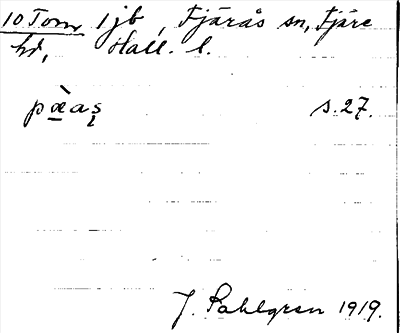 10 Torn 1 jb, Fjärås sn, Fjäre
hd, Hall. l.
pæ̀as̨ s. 27.
J. Sahlgren 1919.